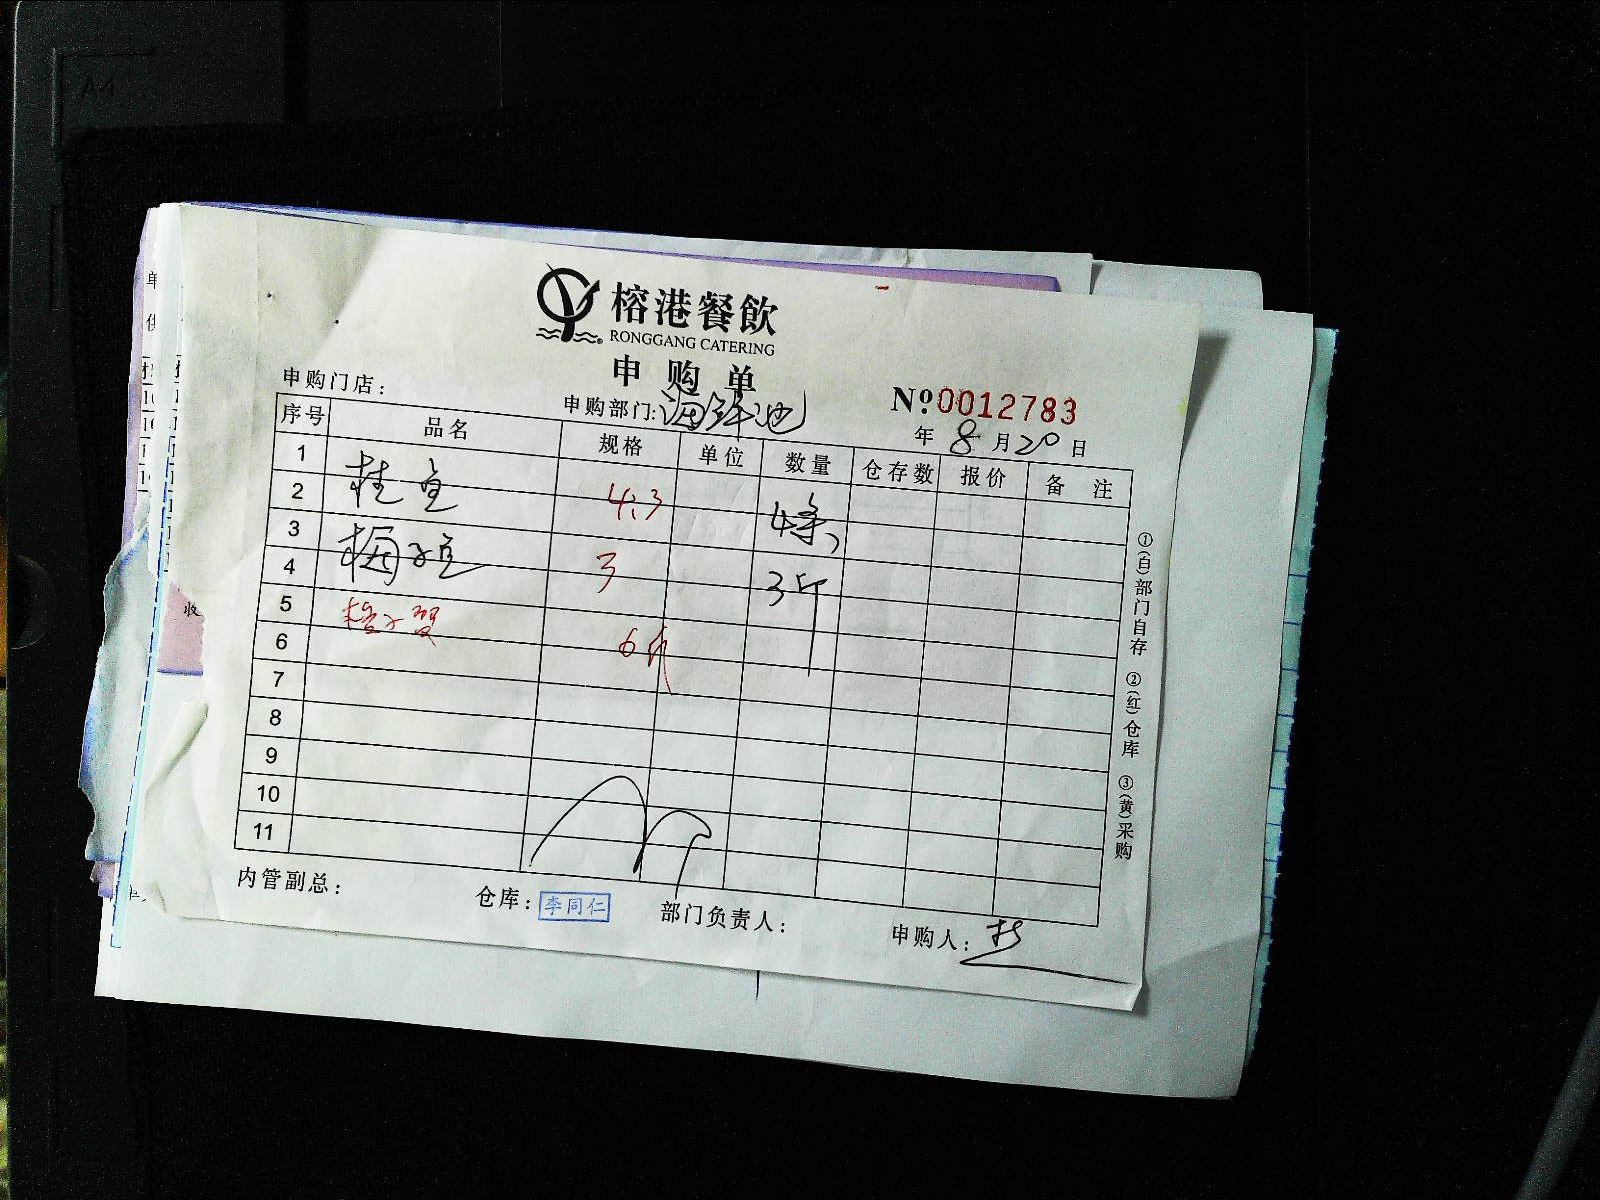 A4
榕港餐飲
RONGGANG CATERING
申购单
申购门店：
申购部门：海鲜池
№0012783
年 8月20日
序号 品名 规格 单位 数量 仓存数 报价 备注
1
2 桂鱼 4.3 4条
3
4 3 3斤
5
6 6斤
7
8
9
10
11
①(白)部门自存 ②(红)仓库 ③(黄)采购
内管副总： 仓库：李同仁 部门负责人： 申购人：